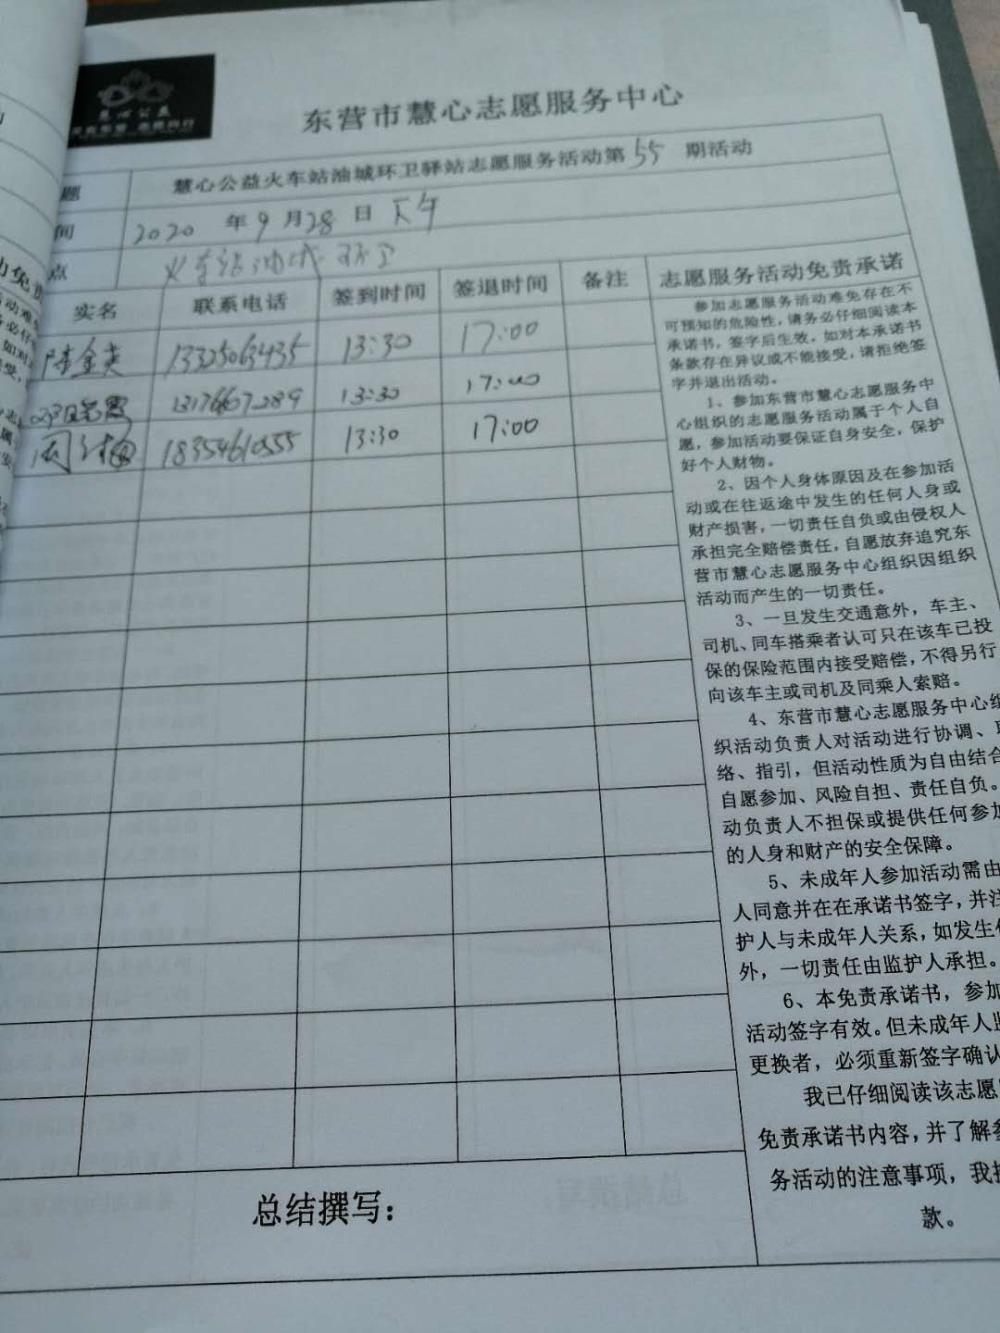 慧心公益
东营市慧心志愿服务中心
题 慧心公益火车站油城环卫驿站志愿服务活动第55期活动
间 2020年9月28日下午
点 火车站油城环卫
实名 联系电话 签到时间 签退时间 备注 志愿服务活动免责承诺
金英 13325063435 13:30 17:00
13176607289 13:30 17:00
周 18354610555 13:30 17:00
参加志愿服务活动难免存在不
可预知的危险性，请务必仔细阅读本
承诺书，签字后生效，如对本承诺书
条款存在异议或不能接受，请拒绝签
字并退出活动。
1、参加东营市慧心志愿服务中
心组织的志愿服务活动属于个人自
愿，参加活动要保证自身安全，保护
好个人财物。
2、因个人身体原因及在参加活
动或在往返途中发生的任何人身或
财产损害，一切责任自负或由侵权人
承担完全赔偿责任，自愿放弃追究东
营市慧心志愿服务中心组织因组织
活动而产生的一切责任。
3、一旦发生交通意外，车主、
司机、同车搭乘者认可只在该车已投
保的保险范围内接受赔偿，不得另行
向该车主或司机及同乘人索赔。
4、东营市慧心志愿服务中心组
织活动负责人对活动进行协调、
络、指引，但活动性质为自由结合
自愿参加、风险自担、责任自负。
动负责人不担保或提供任何参加
的人身和财产的安全保障。
5、未成年人参加活动需由
人同意并在在承诺书签字，并注
护人与未成年人关系，如发生
外，一切责任由监护人承担。
6、本免责承诺书，参加
活动签字有效。但未成年人监
更换者，必须重新签字确认
我已仔细阅读该志愿
免责承诺书内容，并了解参
务活动的注意事项，我
款。
总结撰写：